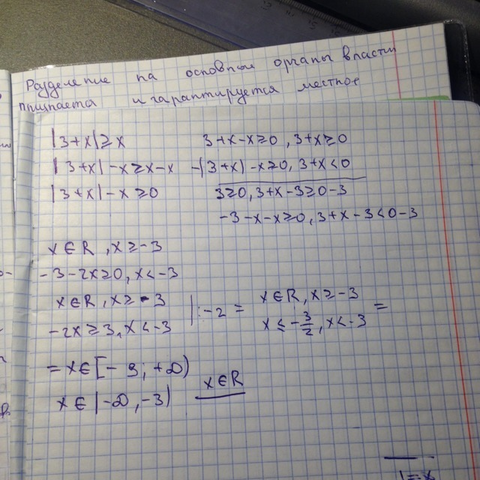 Разделение на основные органы власти
и гарантируется местное
|3+x|≥x 3+x-x≥0, 3+x≥0
|3+x|-x≥x-x -(3+x)-x≥0, 3+x<0
|3+x|-x≥0 3≥0, 3+x-3≥0-3
-3-x-x≥0, 3+x-3<0-3
x∈R, x≥-3
-3-2x≥0, x<-3
x∈R, x≥-3 |:-2 = x∈R, x≥-3 =
-2x≥3, x<-3 x≤-3/2, x<-3
=x∈[-3; +∞)
x∈(-∞, -3) x∈R